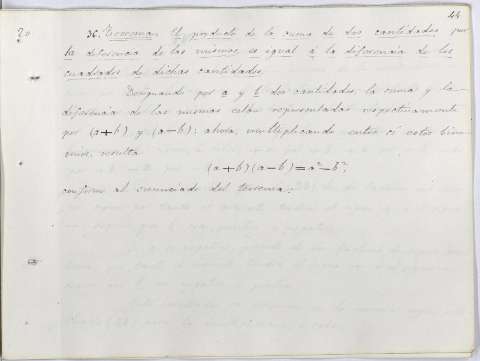 44
20
36. Teorema. El producto de la suma de dos cantidades por
la diferencia de las mismas, es igual á la diferencia de los
cuadrados de dichas cantidades.
Designando por a y b dos cantidades, la suma y la
diferencia de las mismas están representadas respectivamente
por (a+b) y (a-b); ahora, multiplicando entre sí estos bino-
mios, resulta
(a+b)(a-b)=a²-b²,
conforme al enunciado del teorema.